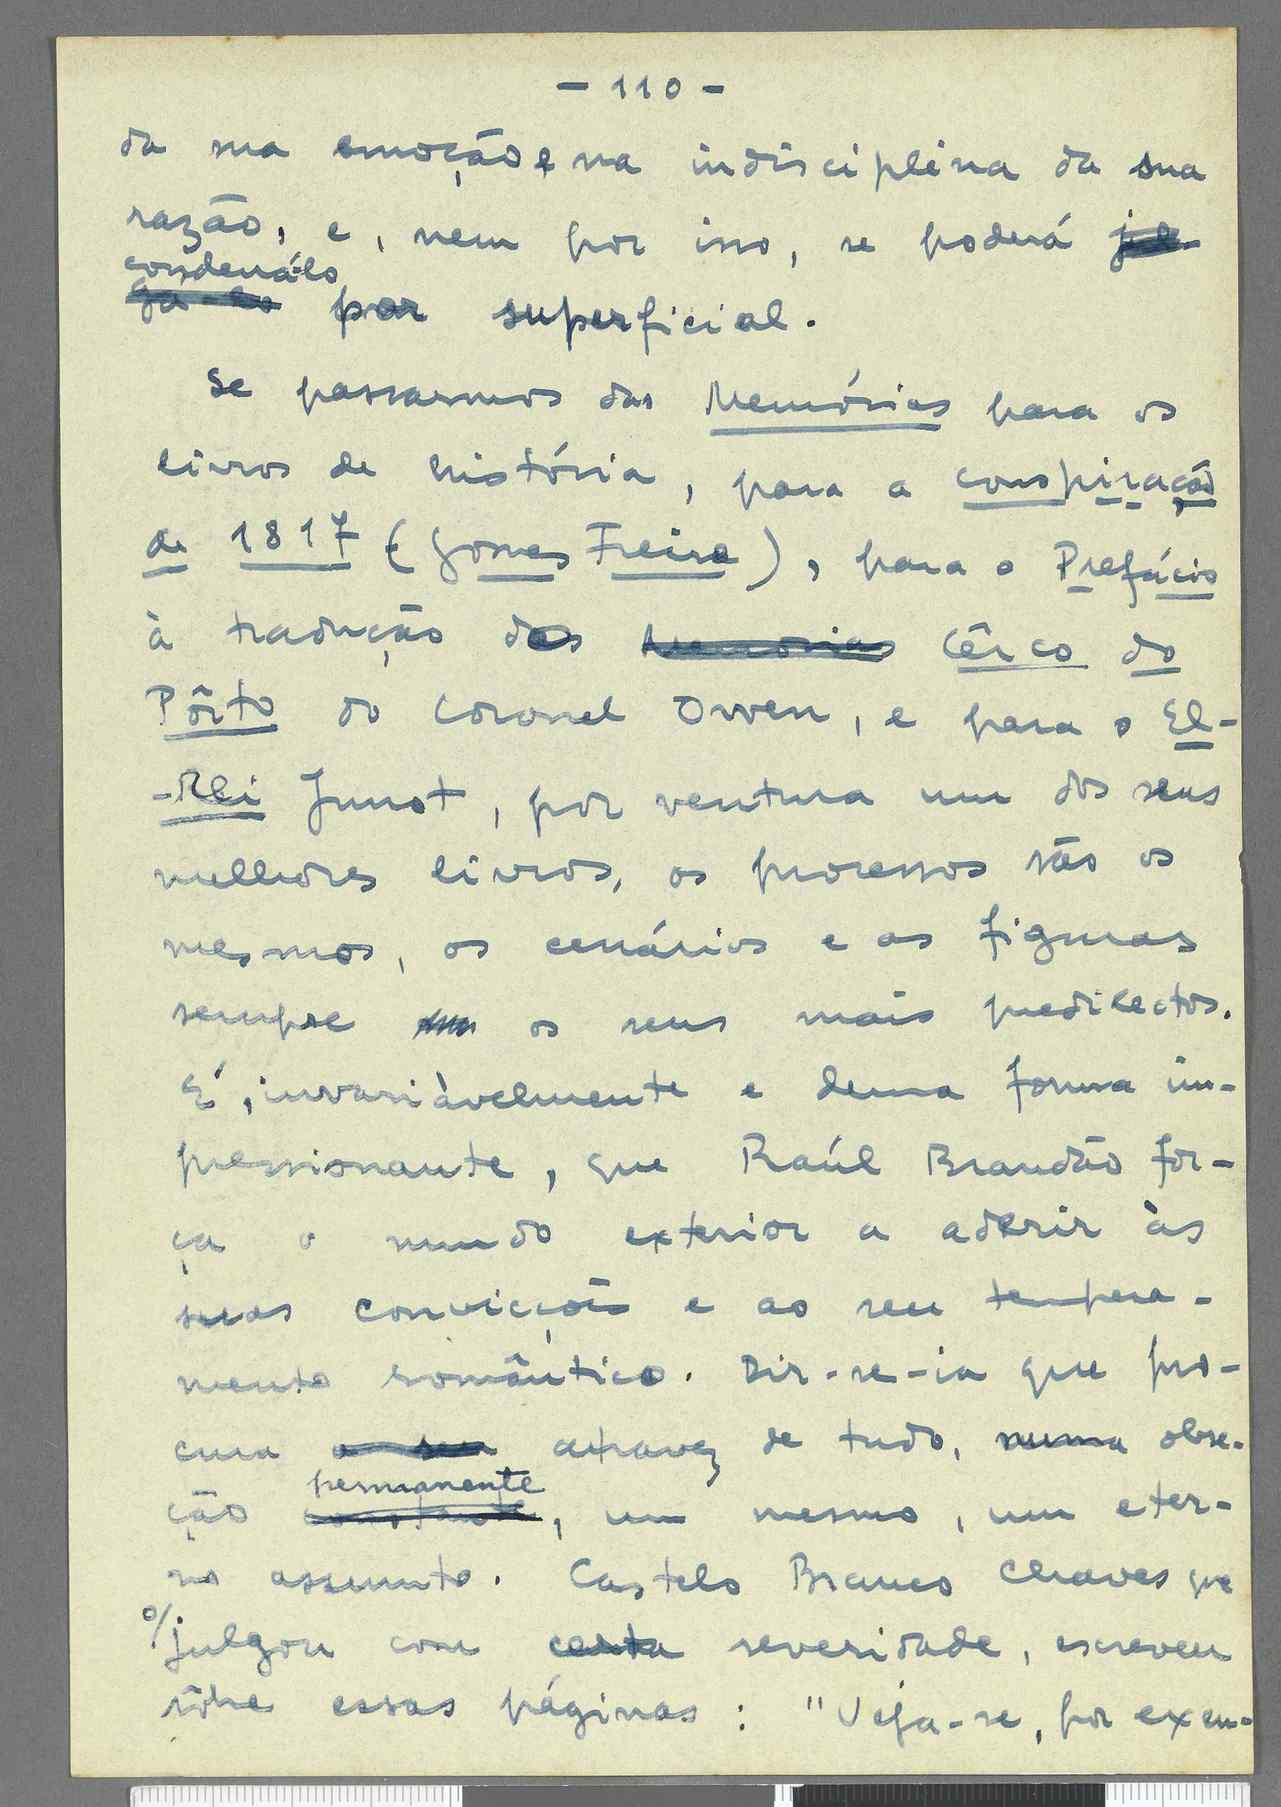 - 110 -
da sua emoção e na indisciplina da sua
razão, e, nem por isso, se poderá jul-
condená-lo
gá-lo por superficial.
Se passarmos das Memórias para os
livros de história, para a conspiração
de 1817 (Gomes Freire), para o Prefácio
à tradução do Memórias Cêrco do
Pôrto do coronel Owen, e para o El-
-Rei Junot, por ventura um dos seus
melhores livros, os processos são os
mesmos, os cenários e as figuras
sempre os seus mais predilectos.
É, invariàvelmente e duma forma im-
pressionante, que Raúl Brandão for-
ça o mundo exterior a aderir às
suas convicções e ao seu tempera-
mento romântico. Dir-se-ia que pro-
cura o seu atravez de tudo, numa obse-
permanente
ção constante, um mesmo, um eter-
no assunto. Castelo Branco Chaves que
o/ julgou com certa severidade, escreveu
sôbre essas páginas: "Veja-se, por exem-